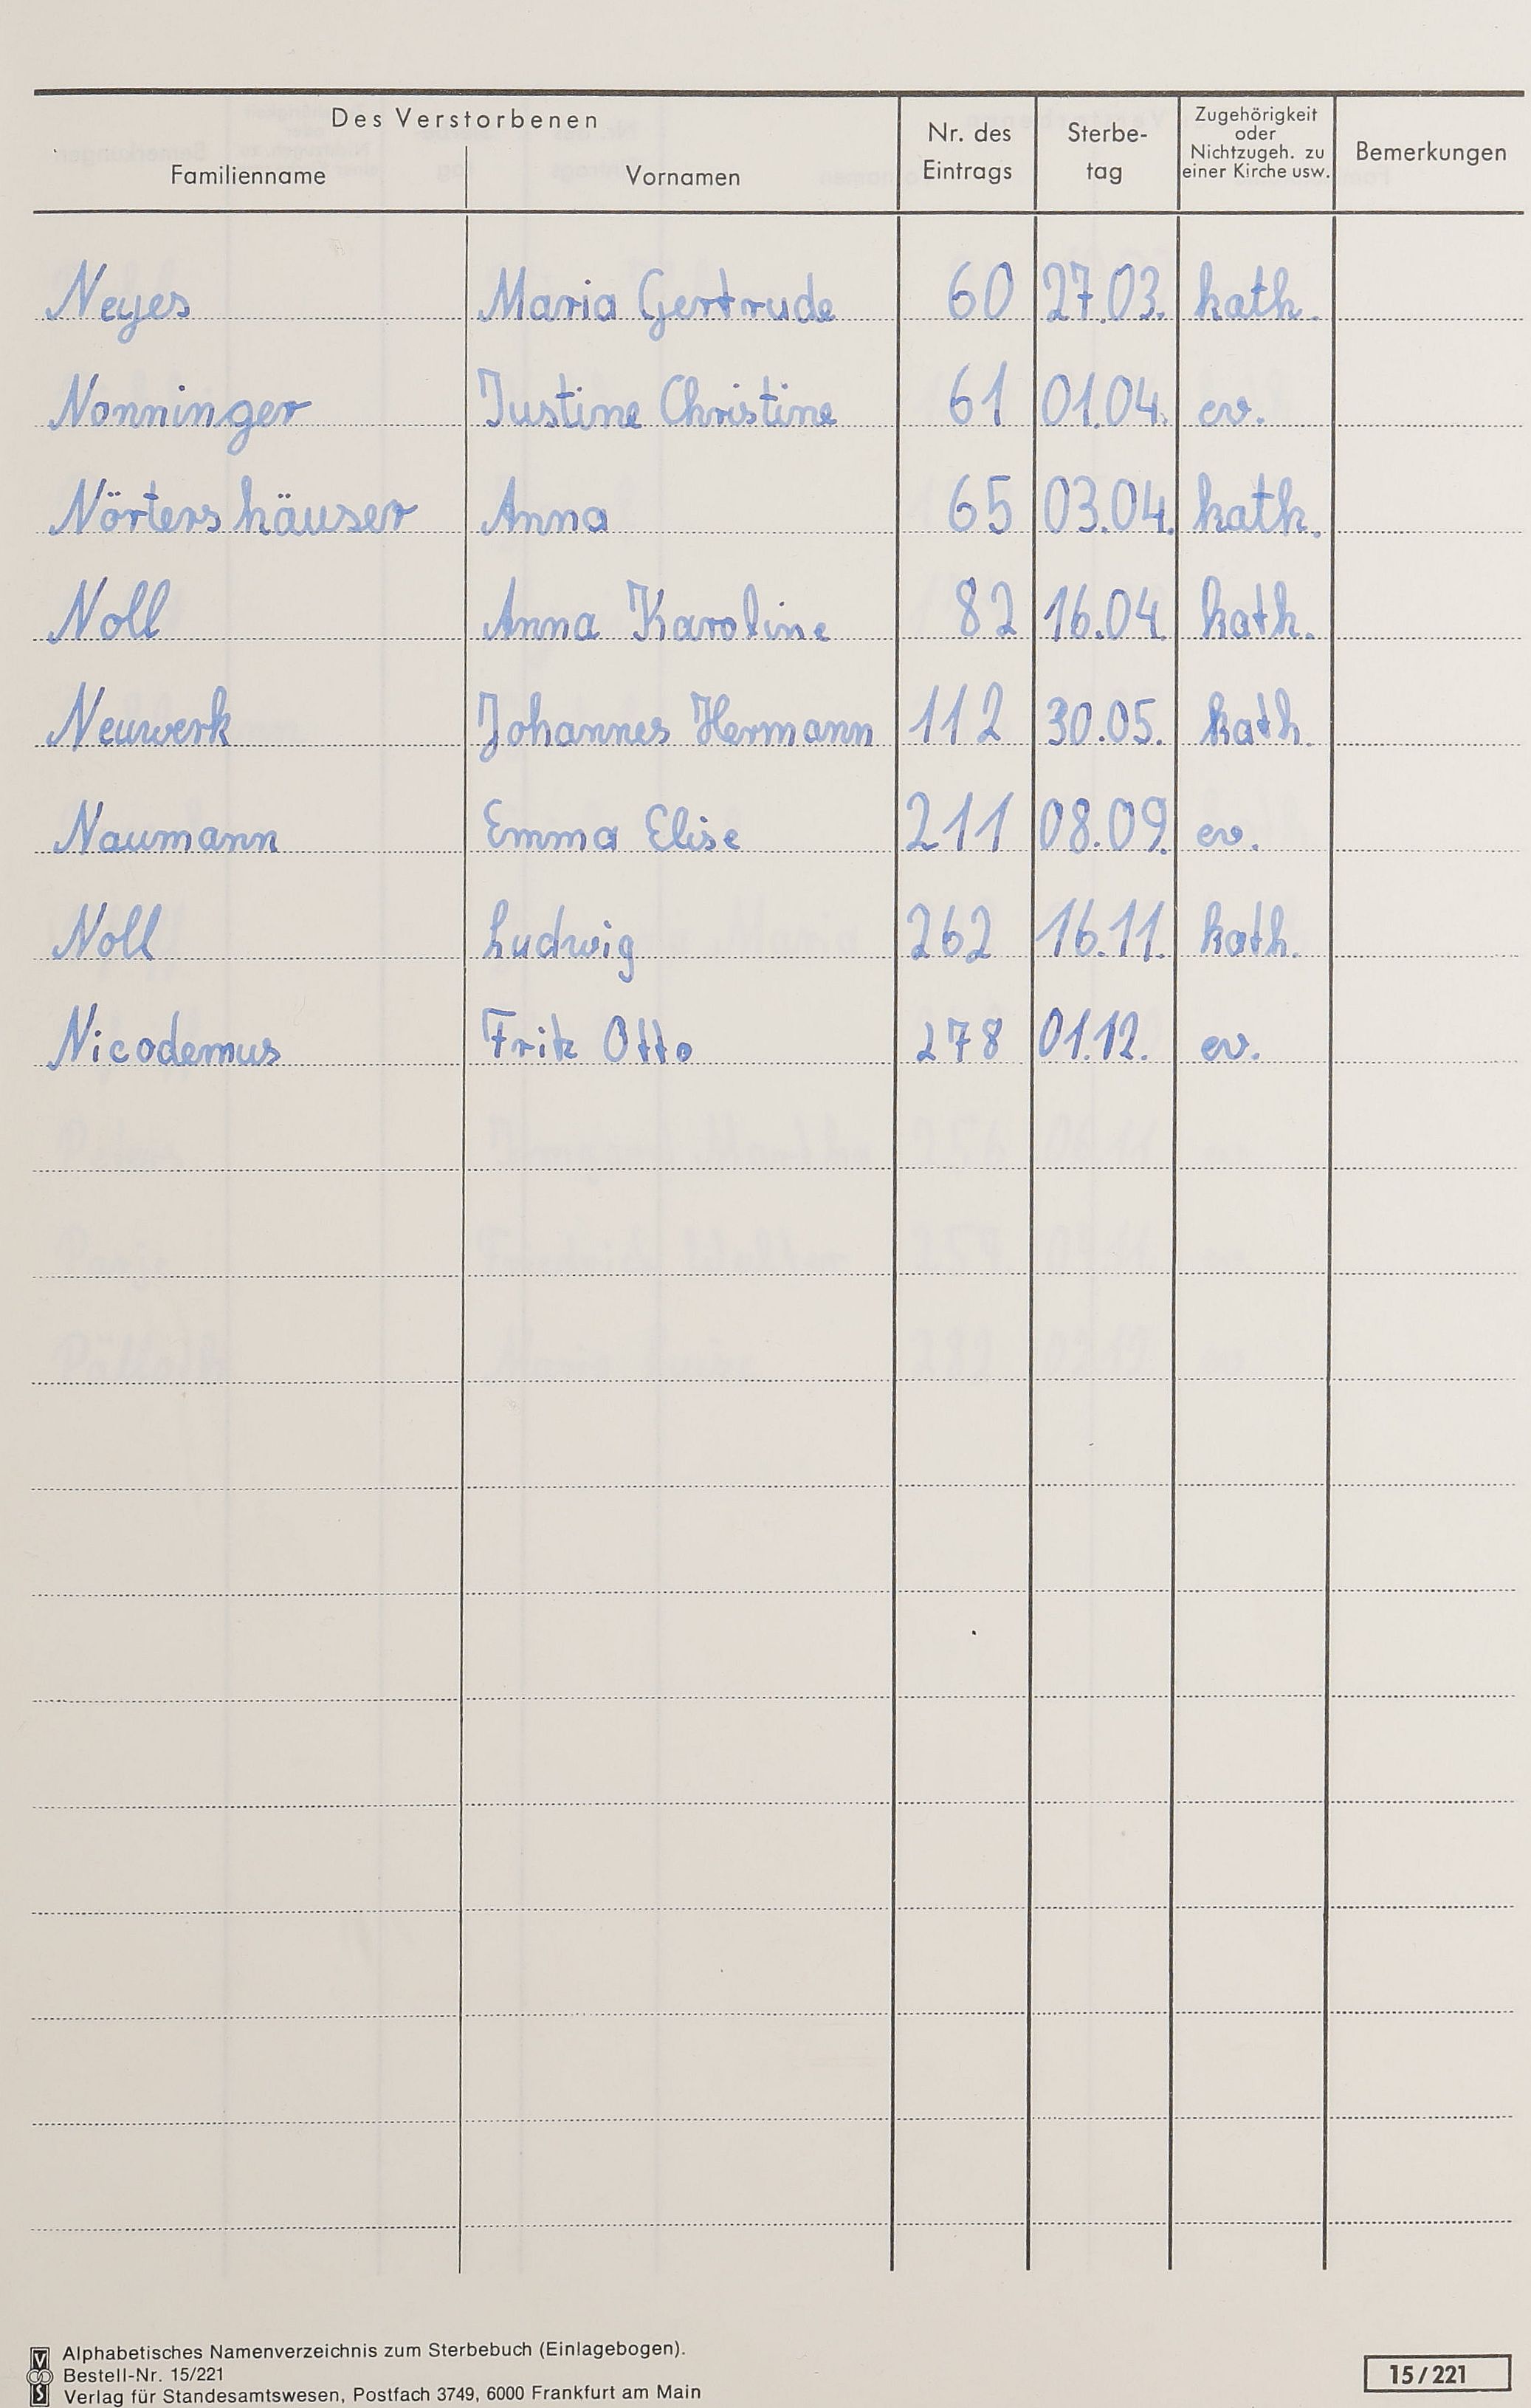 Des Verstorbenen
Familienname Vornamen Nr. des Eintrags Sterbe-tag Zugehörigkeit oder Nichtzugeh. zu einer Kirche usw. Bemerkungen
Neyes Maria Gertrude 60 27.03. kath.
Nonninger Justine Christine 61 01.04. ev.
Nörtershäuser Anna 65 03.04. kath.
Noll Anna Karoline 82 16.04. kath.
Neuwerk Johannes Hermann 112 30.05. kath.
Naumann Emma Elise 211 08.09. ev.
Noll Ludwig 262 16.11. kath.
Nicodemus Fritz Otto 278 01.12. ev.
Alphabetisches Namenverzeichnis zum Sterbebuch (Einlagebogen).
Bestell-Nr. 15/221
Verlag für Standesamtswesen, Postfach 3749, 6000 Frankfurt am Main
15/221